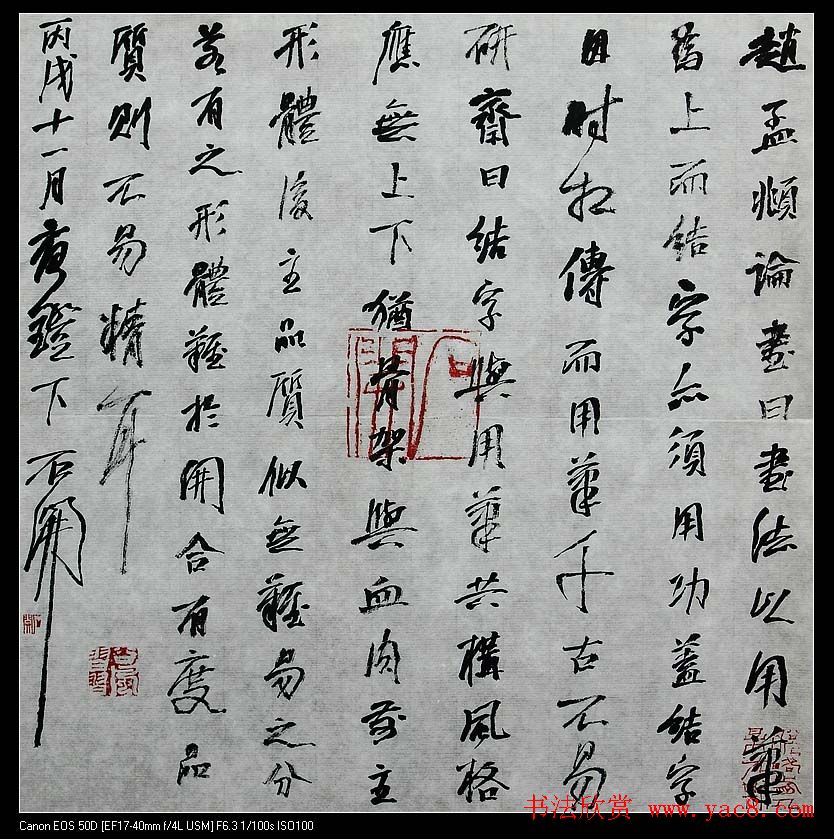 趙孟頫論書曰書法以用筆
為上而結字亦須用功蓋結字
因時相傳而用筆千古不易
研齋曰結字與用筆共構風格
應無上下猶骨架與血肉前主
形體後主品質似無難易之分
若有之形體難於開合有度品
質則不易精耳
丙戌十一月夜鐙下石開
书法欣赏 www.yac8.com
Canon EOS 50D [EF17-40mm f/4L USM] F6.3 1/100s ISO100